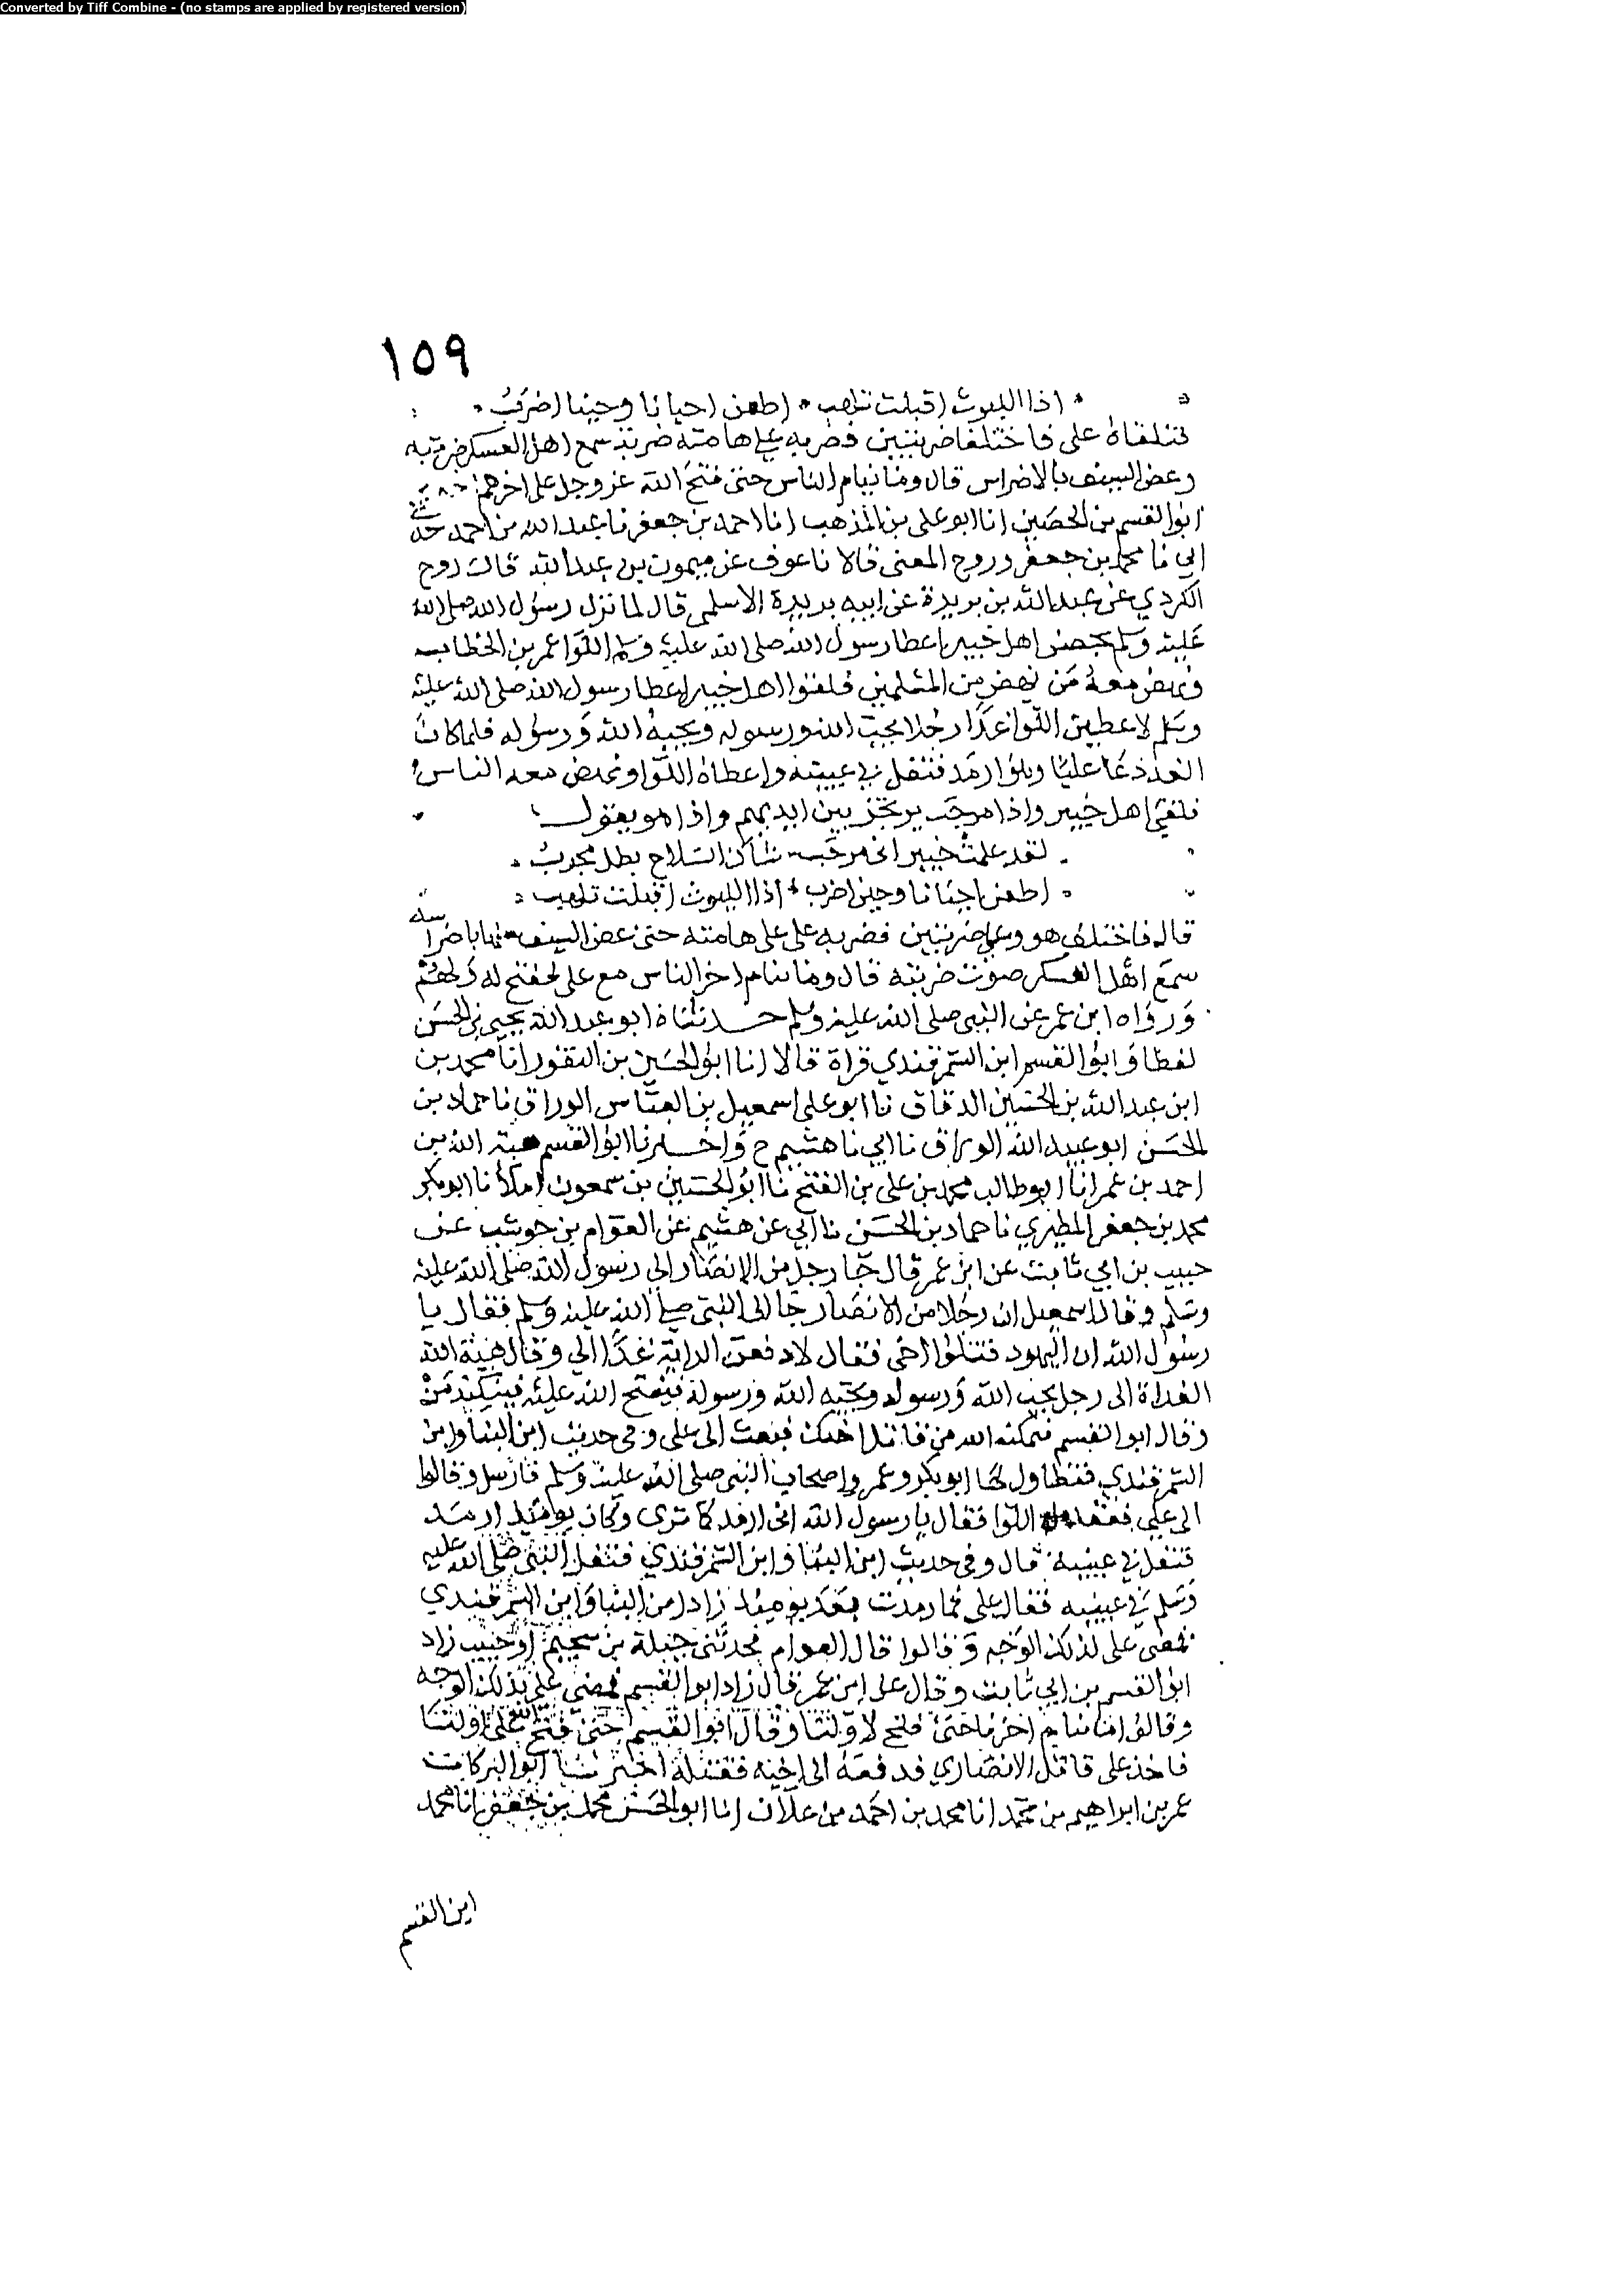 Converted by Tiff Combine - (no stamps are applied by registered version)
١٥٩
اذا الليوث اقبلت تلهب اطعن احيانا وحينا اضرب
فتلقاه على فاختلفا ضربتين فضربه على هامته ضربة سمع اهل العسكر ضربته
وعض السيف بالاضراس قال وما تتام الناس حتى فتح الله عز وجل على اخرهم
ابو القسم بن الحصين انا ابو على بن المذهب انا احمد بن جعفر نا عبد الله بن احمد حدثني
ابي نا محمد بن جعفر وروح المعنى قالا نا عوف عن ميمون بن عبد الله قال روح
الكردي عن عبد الله بن بريدة عن ابيه بريدة الاسلمى قال لما نزل رسول الله صلى الله
عليه وسلم بحصن اهل خيبر اعطا رسول الله صلى الله عليه وسلم اللوا عمر بن الخطاب
ونهض معه من نهض من المسلمين فلقوا اهل خيبر اعطا رسول الله صلى الله عليه
وسلم لاعطين اللوا غدا رجلا يحب الله ورسوله ويحبه الله ورسوله فلما كان
الغد دعا عليا وهو ارمد فتفل في عينيه واعطاه اللوا ونهض معه الناس
فلقي اهل خيبر واذا مرحب يرتجز بين ايديهم واذا هو يقول
لقد علمت خيبر انى مرحب شاك السلاح بطل مجرب
اطعن احيانا وحين اضرب اذا الليوث اقبلت تلهب
قال فاختلف هو وعلى ضربتين فضربه على على هامته حتى عض السيف منها باضراسه
سمع اهل العسكر صوت ضربته قال وما تتام اخر الناس مع على حتى فتح له ولهم
ورواه ابن عمر عن النبى صلى الله عليه وسلم حدثناه ابو عبد الله يحيى بن الحسن
لفظا وابو القسم ابن السمرقندي قراة قالا انا ابو الحسين بن النقور انا محمد بن
ابن عبد الله بن الحسين الدقاق نا ابو على اسمعيل بن العباس الوراق نا حماد بن
الحسن ابو عبيد الله الوراق نا ابي نا هشيم ح واخبرنا ابو القسم هبة الله بن
احمد بن عمر انا ابو طالب محمد بن على بن الفتح نا ابو الحسين بن سمعون املا نا ابو بكر
محمد بن جعفر المطيري نا حماد بن الحسن نا ابي عن هشيم عن العوام بن حوشب عن
حبيب بن ابي ثابت عن ابن عمر قال جا رجل من الانصار الى رسول الله صلى الله عليه
وسلم وقال اسمعيل ان رجلا من الانصار جا الى النبي صلى الله عليه وسلم فقال يا
رسول الله ان اليهود قتلوا اخى فقال لادفعن الراية غدا الي وقال هبة الله
الغداة الى رجل يحب الله ورسوله ويحبه الله ورسوله فيفتح الله عليه
وقال ابو القسم فيمكنه الله من قاتل اخيك فبعث الى على وفى حديث ابن البنا وابن
السمرقندي فتطاول لها ابو بكر وعمر واصحاب النبى صلى الله عليه وسلم فارسل وقالوا
الى على فعقد له اللوا فقال يا رسول الله انى ارمد كما ترى وكان يومئذ ارمد
فتفل في عينيه قال وفى حديث ابن البنا وابن السمرقندي فتفل النبى صلى الله عليه
وسلم في عينيه فقال على فما رمدت بعد يومئذ زاد ابن البنا وابن السمرقندي
فمضى على لذلك الوجه وقالوا قال العوام فحدثنى جبلة بن سحيم او حبيب زاد
ابو القسم بن ابي ثابت وقال على ابن عمر قال زاد ابو القسم فمضى على بذلك الوجه
وقالوا فما تتام اخرنا حتى فتح لاولنا وقال ابو القسم حتى فتح الله على اولنا
فاخذ على قاتل الانصاري فدفعه الى اخيه فقتله اخبرنا ابو البركات
عمر بن ابراهيم بن محمد انا محمد بن احمد بن علان انا ابو الحسن محمد بن جعفر انا محمد
ابن القسم